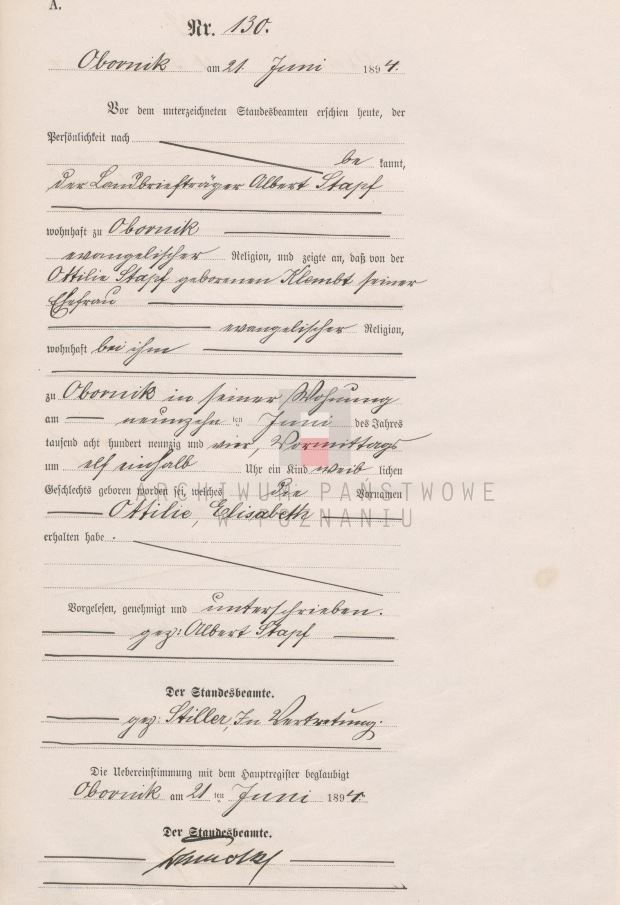 A.
Nr. 130.
Obornik am 21. Juni 1894.
Vor dem unterzeichneten Standesbeamten erschien heute, der
Persönlichkeit nach
be kannt,
der Landbriefträger Albert Stapf
wohnhaft zu Obornik
evangelischer Religion, und zeigte an, daß von der
Ottilie Stapf geborenen Klembt seiner
Ehefrau
evangelischer Religion,
wohnhaft bei ihm
zu Obornik in seiner Wohnung
am neunzehn ten Juni des Jahres
tausend acht hundert neunzig und vier, Vormittags
um elf einhalb Uhr ein Kind weib lichen
Geschlechts geboren worden sei, welches die Vornamen
ARCHIWUM PAŃSTWOWE
W POZNANIU
Ottilie, Elisabeth
erhalten habe.
Vorgelesen, genehmigt und unterschrieben.
gez: Albert Stapf
Der Standesbeamte.
gez: Stiller, In Vertretung.
Die Uebereinstimmung mit dem Hauptregister beglaubigt
Obornik am 21 ten Juni 1894.
Der Standesbeamte.